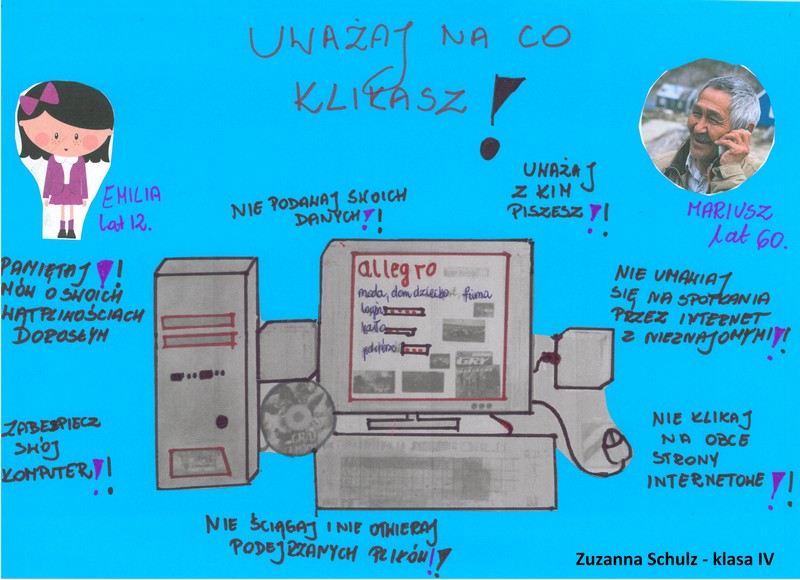 UWAŻAJ NA CO
KLIKASZ!
EMILIA
lat 12.
MARIUSZ
lat 60.
NIE PODAWAJ SWOICH
DANYCH!!
UWAŻAJ
Z KIM
PISZESZ!!
PAMIĘTAJ!!
MÓW O SWOICH
WĄTPLIWOŚCIACH
DOROSŁYM
allegro
moda, dom dziecko, firma
login
hasło
GRY
NIE UMAWIAJ
SIĘ NA SPOTKANIA
PRZEZ INTERNET
Z NIEZNAJOMYMI!!
ZABEZPIECZ
SWÓJ
KOMPUTER!!
NIE KLIKAJ
NA OBCE
STRONY
INTERNETOWE!!
NIE ŚCIĄGAJ I NIE OTWIERAJ
PODEJRZANYCH PLIKÓW!!
Zuzanna Schulz - klasa IV